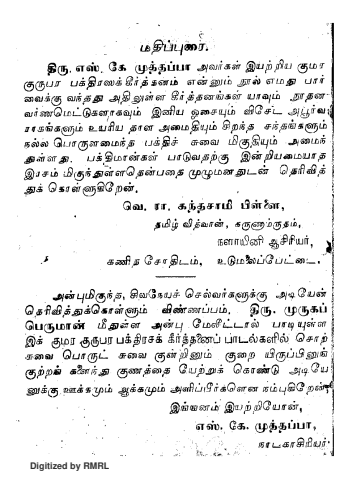 மதிப்புரை.
திரு. எஸ். கே முத்தப்பா அவர்கள் இயற்றிய குமர
குருபர பக்திரஸக்கீர்த்தனம் என்னும் நூல் எமது பார்
வைக்கு வந்தது அதிலுள்ள கீர்த்தனங்கள் யாவும் நூதன
வர்ணமெட்டுகளாகவும் இனிய ஓசையும் விசேட அபூர்வ
ராகங்களும் உயரிய தாள அமைதியும் சிறந்த சந்தங்களும்
நல்ல பொருளமைந்த பக்திச் சுவை மிகுதியும் அமைந்
துள்ளது. பக்திமான்கள் பாடுவதற்கு இன்றியமையாத
இரசம் மிகுந்துள்ளதென்பதை முழுமனதுடன் தெரிவித்
துக் கொள்ளுகிறேன்.
வெ. ரா. கந்தசாமி பிள்ளை,
தமிழ் வித்வான், கருணாம்ருதம்,
நளாயினி ஆசிரியர்,
கணித சோதிடம், உடுமலைப்பேட்டை.
அன்புமிகுந்த, சிவநேயச் செல்வர்களுக்கு அடியேன்
தெரிவித்துக்கொள்ளும் விண்ணப்பம். திரு. முருகப்
பெருமான் மீதுள்ள அன்பு மேலீட்டால் பாடியுள்ள
இக் குமர குருபர பக்திரசக் கீர்த்தனைப் பாடல்களில் சொற்
சுவை பொருட் சுவை குன்றினும் குறை யிருப்பினுங்
குற்றங் களைந்து குணத்தை யேற்றுக் கொண்டு அடியே
னுக்கு ஊக்கமும் ஆக்கமும் அளிப்பீர்களென நம்புகிறேன்
இங்ஙனம் இயற்றியோன்,
எஸ். கே. முத்தப்பா,
நாடகாசிரியர்
Digitized by RMRL